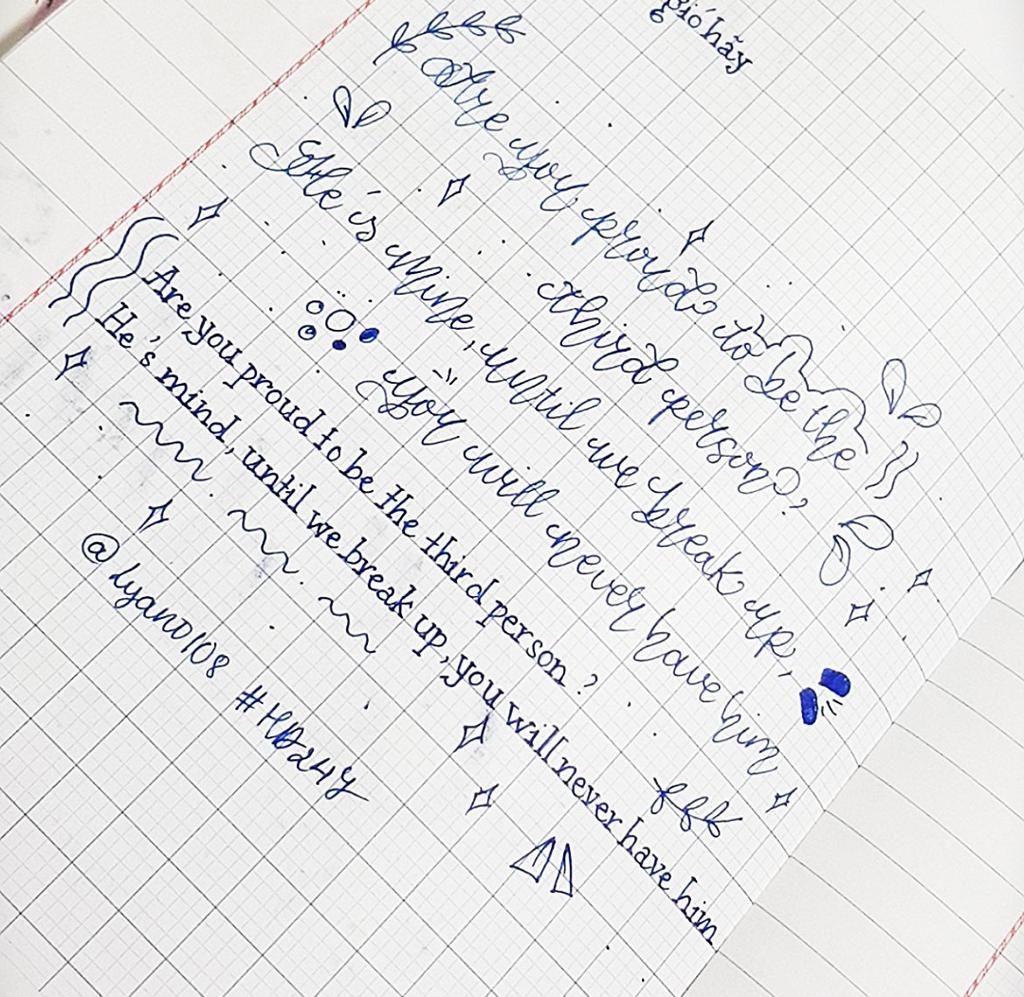 gió hãy
Are you proud to be the
third person?,
He's mine, until we break up,
you will never have him
Are you proud to be the third person?
He's mind, until we break up, you will never have him
@lyano108 #HD24y